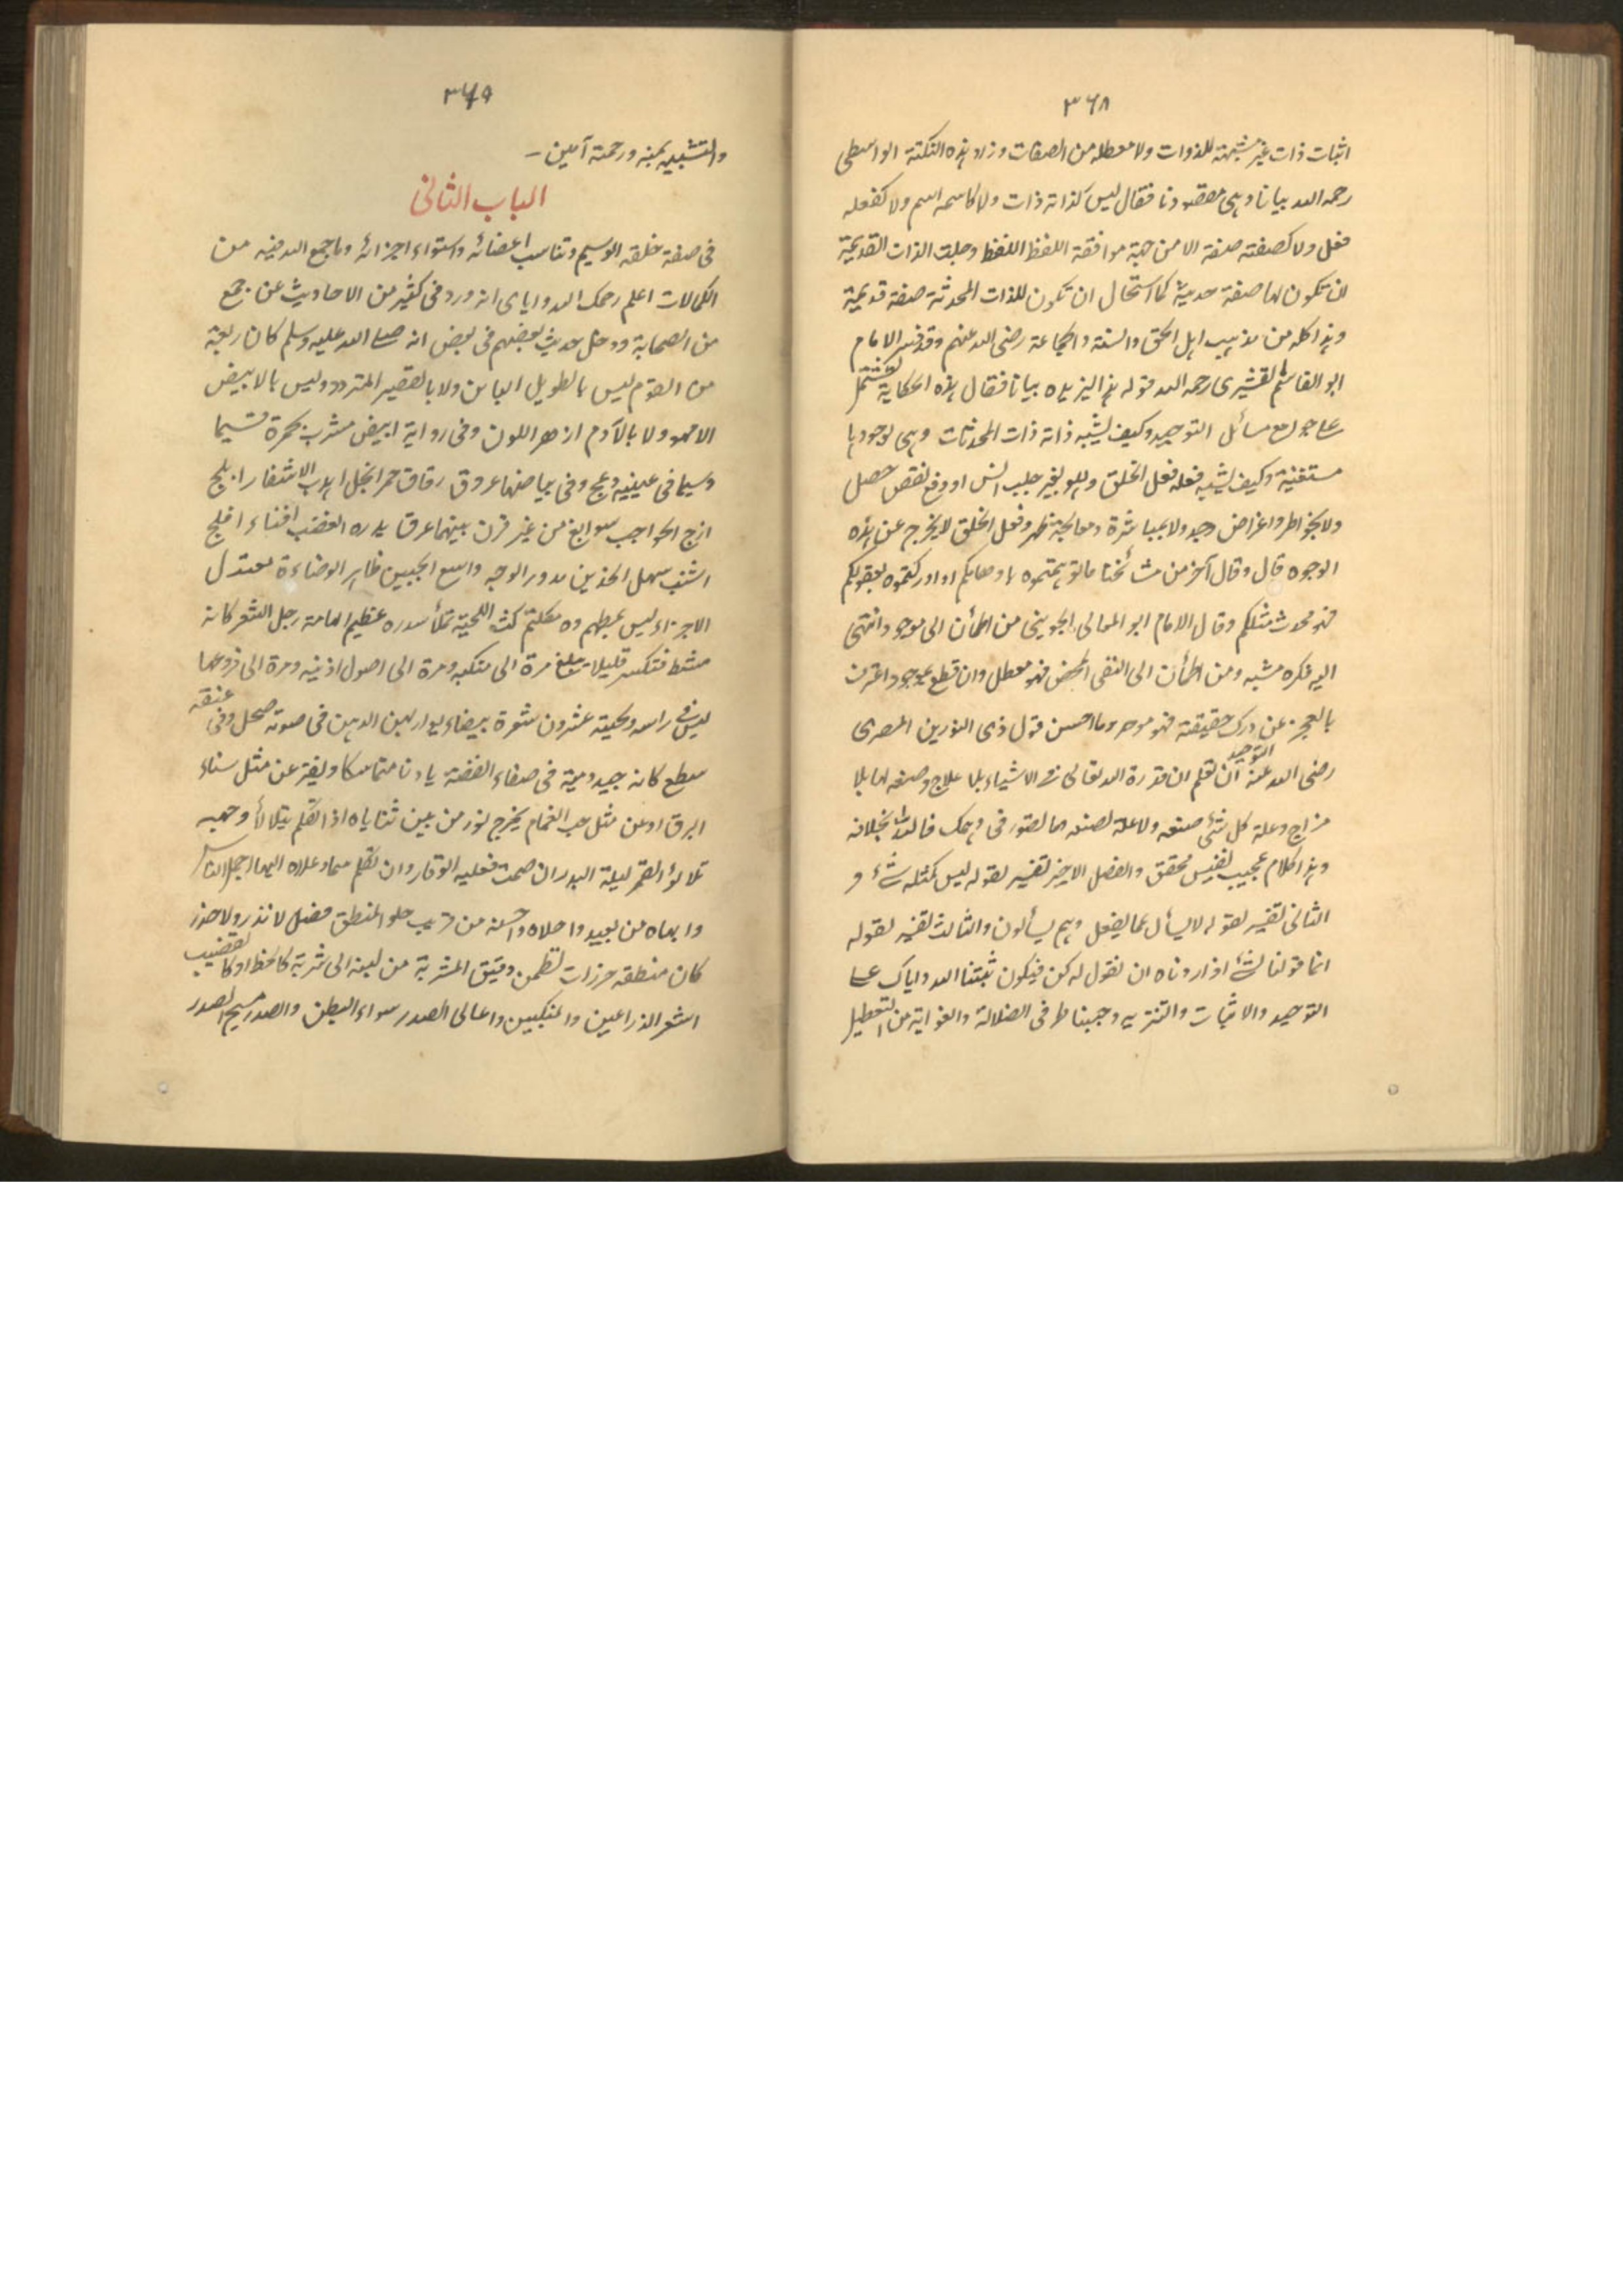 ٣٦٨
اثبات ذات غير مشبهة للذوات ولا معطلة من الصفات وزاد هذه النكتة الواسطى
رحمه الله بيانا وهى مقصودنا فقال ليس كذاته ذات ولا كاسمه اسم ولا كفعله
فعل ولا كصفته صفة الا من جهة موافقة اللفظ اللفظ وجلت الذات القديمة
ان تكون لها صفة حديثة كما استحال ان تكون للذات المحدثة صفة قديمة
وهذا كله من مذهب اهل الحق والسنة والجماعة رضى الله عنهم وقد فسر الامام
ابو القاسم القشيرى رحمه الله قوله هذا ليزيده بيانا فقال هذه الحكاية تشتمل
على جوامع مسائل التوحيد وكيف تشبه ذاته ذات المحدثات وهى بوجودها
مستغنية وكيف يشبه فعله فعل الخلق وهو لغير جلب انس او دفع نقص حصل
ولا بخواطر واغراض وجد ولا بمباشرة ومعالجة ظهر وفعل الخلق لا يخرج عن هذه
الوجوه قال وقال آخر من مشائخنا ما توهمتموه باوهامكم او ادركتموه بعقولكم
فهو محدث مثلكم وقال الامام ابو المعالى الجوينى من اطمأن الى موجود انتهى
اليه فكره مشبه ومن اطمأن الى النفى المحض فهو معطل وان قطع بموجود اعترف
بالعجز عن درك حقيقته فهو موحد وما احسن قول ذى النورين المصرى
رضى الله عنه التوحيد ان تعلم ان قدرة الله تعالى فى الاشياء بلا علاج وصنعه لها بلا
مزاج وعلة كل شئ صنعه ولا علة لصنعه وما تصور فى وهمك فالله بخلافه
وهذا كلام عجيب نفيس محقق والفصل الاخير تفسير لقوله ليس كمثله شئ و
الثانى تفسير لقوله لا يسأل عما يفعل وهم يسألون والثالث تفسير لقوله
انما قولنا لشئ اذا اردناه ان نقول له كن فيكون ثبتنا الله واياك على
التوحيد والاثبات والتنزيه وجنبنا طرفى الضلالة والغواية من التعطيل
٣٦٩
والتشبيه بمنه ورحمته آمين –
الباب الثانى
فى صفة خلقه الوسيم وتناسب اعضائه واستواء اجزائه وما جمع الله فيه من
الكمالات اعلم رحمك الله واياى انه ورد فى كثير من الاحاديث عن جمع
من الصحابة ودخل حديث بعضهم فى بعض انه صلى الله عليه وسلم كان ربعة
من القوم ليس بالطويل البائن ولا بالقصير المتردد وليس بالابيض
الامهق ولا بالآدم ازهر اللون وفى رواية ابيض مشرب بحمرة قسيما
وسيما فى عينيه دعج وفى بياضهما عروق رقاق حمر انجل اهدب الاشفار ابلج
ازج الحواجب سوابغ من غير قرن بينهما عرق يدره الغضب اقناء افلج
اشنب سهل الخدين مدور الوجه واسع الجبين ظاهر الوضاءة معتدل
الاجزاء ليس بمطهم ولا مكلثم كث اللحية تملأ صدره عظيم الهامة رجل الشعر كانه
مشط فتكسر قليلا تبلغ مرة الى منكبه ومرة الى اصول اذنيه ومرة الى فروعهما
ليس فى راسه ولحيته عشرون شعرة بيضاء يواريهن الدهن فى صوته صحل وفى عنقه
سطع كانه جيد دمية فى صفاء الفضة بادنا متماسكا ويفتر عن مثل سناء
البرق او عن مثل حب الغمام يخرج نور من بين ثناياه اذا تكلم يتلالأ وجهه
تلالؤ القمر ليلة البدر ان صمت فعليه الوقار وان تكلم سما وعلاه البهاء اجمل الناس
وابهاه من بعيد واحلاه واحسنه من قريب حلو المنطق فصل لا نذر ولا هذر
كان منطقه خرزات نظمن دقيق المشربة من لبته الى سرته كالخط او كالقضيب
اشعر الذراعين والمنكبين واعالى الصدر سواء البطن والصدر مسيح الصدر